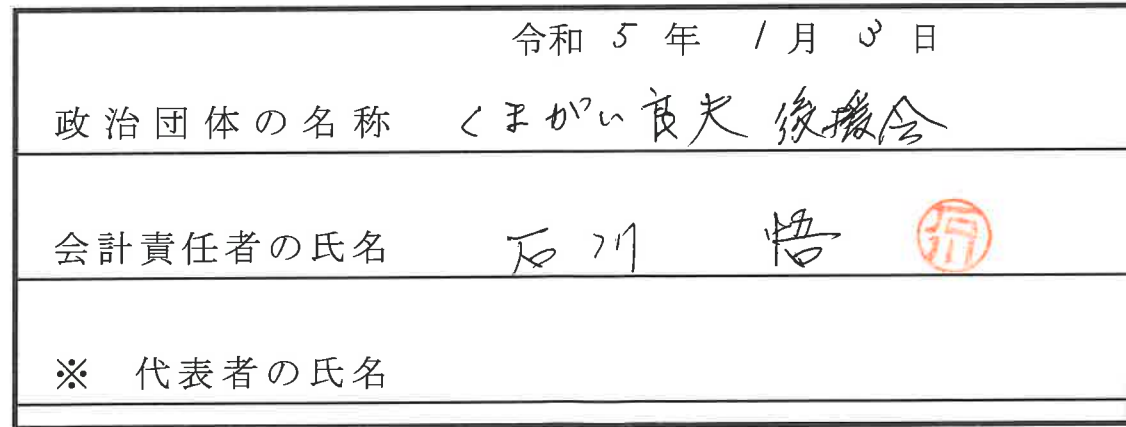 令和 5 年 1 月 3 日
政治団体の名称 くまがい 高夫 後援会
会計責任者の氏名 石川 悟 石川
※ 代表者の氏名